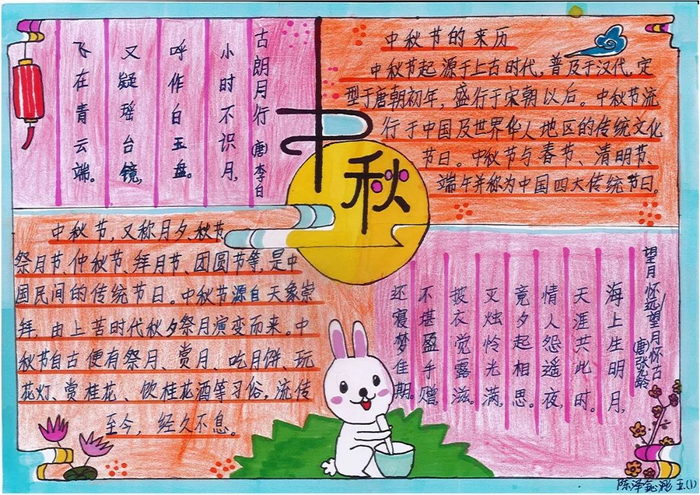 中秋
古朗月行 唐 李白
小时不识月,
呼作白玉盘。
又疑瑶台镜,
飞在青云端。
中秋节的来历
中秋节起源于上古时代,普及于汉代,定
型于唐朝初年,盛行于宋朝以后。中秋节流
行于中国及世界华人地区的传统文化
节日。中秋节与春节、清明节、
端午并称为中国四大传统节日。
中秋节,又称月夕、秋节、
祭月节、仲秋节、拜月节、团圆节等,是中
国民间的传统节日。中秋节源自天象崇
拜,由上古时代秋夕祭月演变而来。中
秋节自古便有祭月、赏月、吃月饼、玩
花灯、赏桂花、饮桂花酒等习俗,流传
至今,经久不息。
望月怀远/望月怀古
唐张九龄
海上生明月,
天涯共此时。
情人怨遥夜,
竟夕起相思。
灭烛怜光满,
披衣觉露滋。
不堪盈手赠,
还寝梦佳期。
陈泽